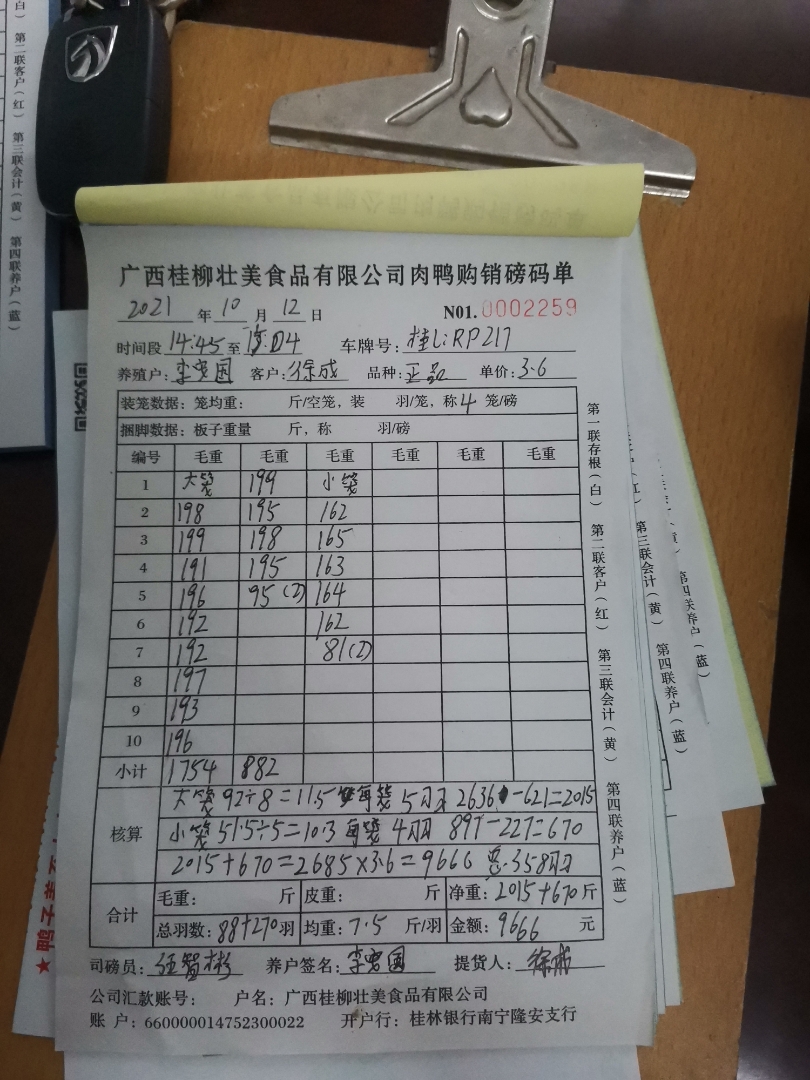 广西桂柳壮美食品有限公司肉鸭购销磅码单
2021 年 10 月 12 日 N01.0002259
时间段 14:45 至 15:04 车牌号: 桂L:RP217
养殖户: 李 国 客户: 徐成 品种: 正品 单价: 3.6
装笼数据: 笼均重: 斤/空笼, 装 羽/笼, 称 4 笼/磅
捆脚数据: 板子重量 斤, 称 羽/磅
编号 毛重 毛重 毛重 毛重 毛重 毛重
1 大笼 199 小笼
2 198 195 162
3 199 198 165
4 191 195 163
5 196 95(2) 164
6 192 162
7 192 81(2)
8 197
9 193
10 196
小计 1754 882
核算
大笼 92÷8=11.5 每笼 5羽 2636-621=2015
小笼 51.5÷5=10.3 每笼 4羽 897-227=670
2015+670=2685×3.6=9666 总:358羽
合计
毛重: 斤 皮重: 斤 净重: 2015+670 斤
总羽数: 88+270 羽 均重: 7.5 斤/羽 金额: 9666 元
司磅员: 养户签名: 李 国 提货人: 徐成
公司汇款账号: 户名: 广西桂柳壮美食品有限公司
账 户: 660000014752300022 开户行: 桂林银行南宁隆安支行
第一联存根(白) 第二联客户(红) 第三联会计(黄) 第四联养户(蓝)
白) 第二联客户(红) 第三联会计(黄) 第四联养户(蓝)
第三联会计(黄) 第四联养户(蓝)
第四联养户(蓝)